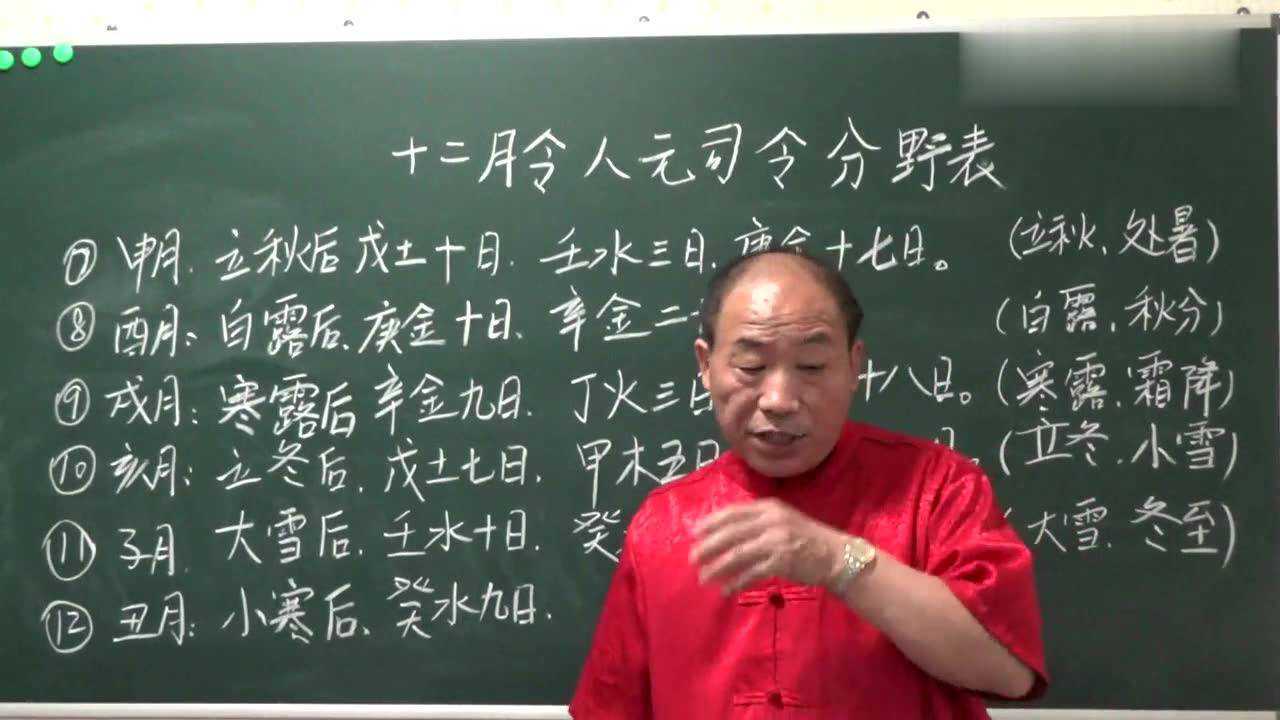 十二月令人元司令分野表
⑦ 申月. 立秋后戊土十日. 壬水三日. 庚金十七日。 (立秋. 处暑)
⑧ 酉月: 白露后. 庚金十日. 辛金二 (白露. 秋分)
⑨ 戌月: 寒露后辛金九日. 丁火三日 十八日。 (寒露. 霜降)
⑩ 亥月: 立冬后. 戊土七日. 甲木五日 日. (立冬. 小雪)
⑪ 子月. 大雪后. 壬水十日. 癸 (大雪. 冬至)
⑫ 丑月: 小寒后. 癸水九日.